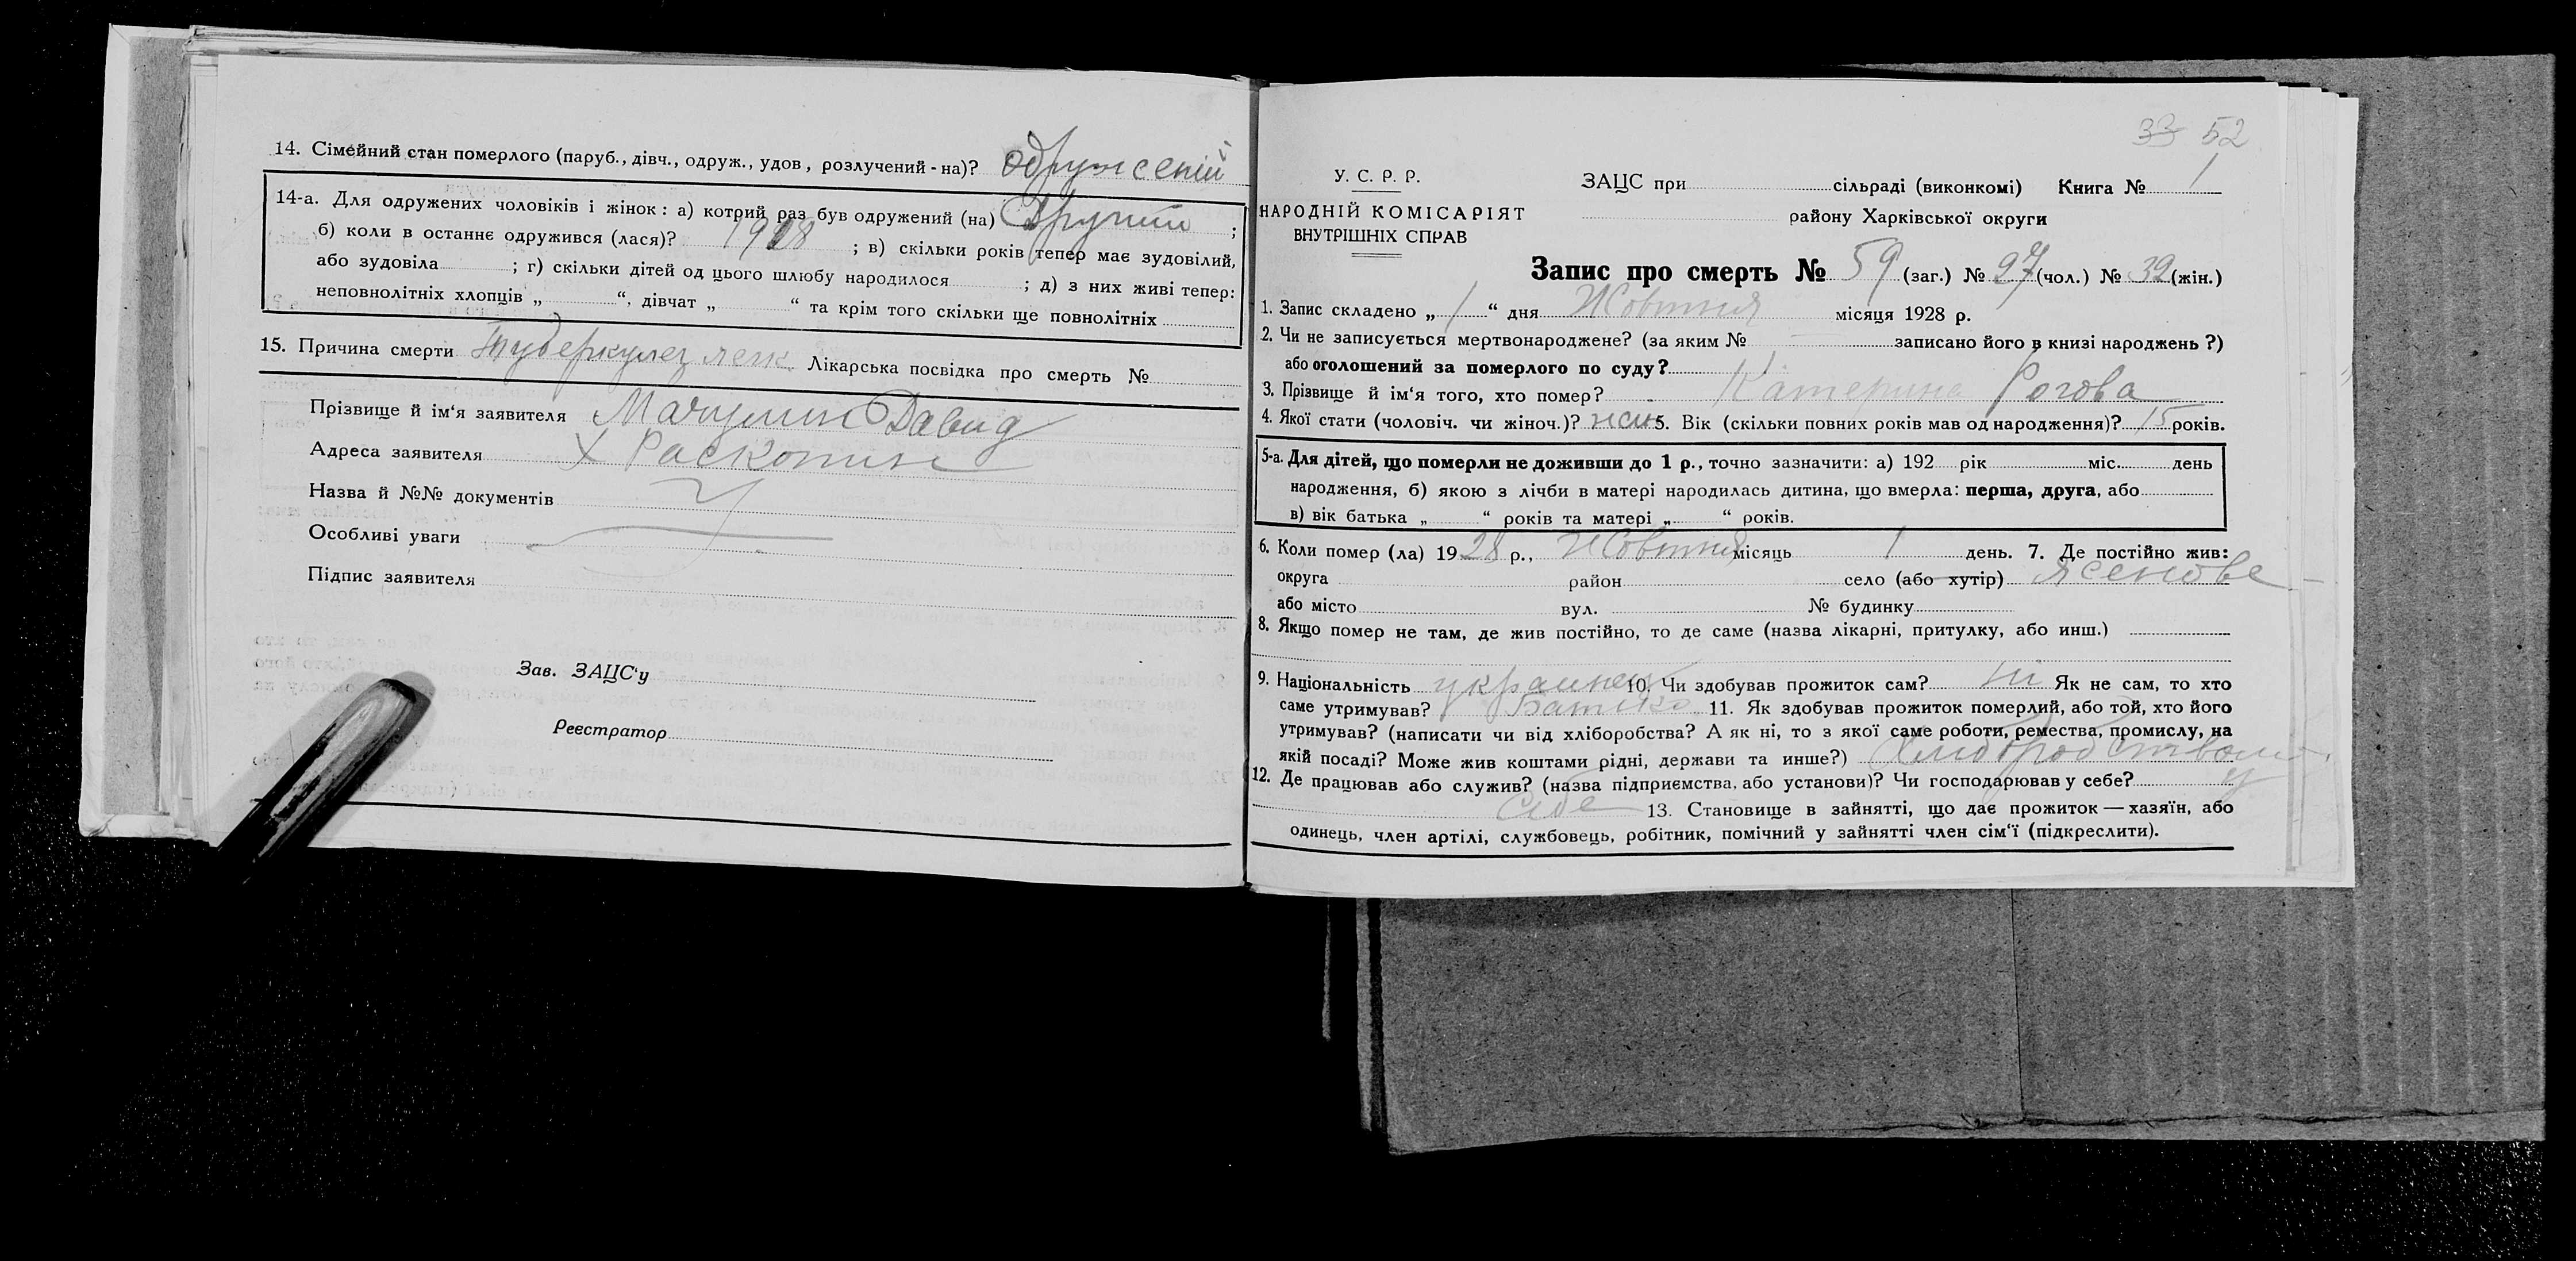 14. Сімейний стан померлого (паруб., дівч., одруж., удов, розлучений - на)? одружений
14-а. Для одружених чоловіків і жінок: а) котрий раз був одружений (на) Другий ;
б) коли в останнє одружився (лася)? 1918 ; в) скільки років тепер має зудовілий,
або зудовіла ; г) скільки дітей од цього шлюбу народилося ; д) з них живі тепер:
неповнолітніх хлопців „ “, дівчат „ “ та крім того скільки ще повнолітніх
15. Причина смерти Туберкулез легк. Лікарська посвідка про смерть №
Прізвище й ім‘я заявителя Давид
Адреса заявителя Х
Назва й №№ документів
Особливі уваги
Підпис заявителя
Зав. ЗАЦС‘у
Реєстратор
33 52
У. С. Р. Р.
НАРОДНІЙ КОМІСАРІЯТ
ВНУТРІШНІХ СПРАВ
ЗАЦС при сільраді (виконкомі) Книга № 1
району Харківської округи
Запис про смерть № 59 (заг.) № 27 (чол.) № 32 (жін.)
1. Запис складено „ 1 “ дня Жовтня місяця 1928 р.
2. Чи не записується мертвонароджене? (за яким № записано його в книзі народжень ?)
або оголошений за померлого по суду?
3. Прізвище й ім‘я того, хто помер? Катерина Рогова
4. Якої стати (чоловіч. чи жіноч.)? жін 5. Вік (скільки повних років мав од народження)? 15 років.
5-а. Для дітей, що померли не доживши до 1 р., точно зазначити: а) 192 рік міс. день
народження, б) якою з лічби в матері народилась дитина, що вмерла: перша, друга, або
в) вік батька „ “ років та матері „ “ років.
6. Коли помер (ла) 1928 р., Жовтня місяць 1 день. 7. Де постійно жив:
округа район село (або хутір) Ясенове
або місто вул. № будинку
8. Якщо помер не там, де жив постійно, то де саме (назва лікарні, притулку, або инш.)
9. Національність украинец 10. Чи здобував прожиток сам? ні Як не сам, то хто
саме утримував? Батько 11. Як здобував прожиток померлий, або той, хто його
утримував? (написати чи від хліборобства? А як ні, то з якої саме роботи, ремества, промислу, на
якій посаді? Може жив коштами рідні, держави та инше?) Хліборобством
12. Де працював або служив? (назва підприємства, або установи)? Чи господарював у себе? у
себе 13. Становище в зайнятті, що дає прожиток — хазяїн, або
одинець, член артілі, службовець, робітник, помічний у зайнятті член сім‘ї (підкреслити).